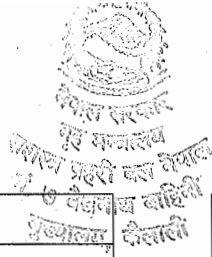 नेपाल सरकार
गृह मन्त्रालय
सशस्त्र प्रहरी बल नेपाल
वैद्यनाथ बाहिनी
मुख्यालय कैलाली